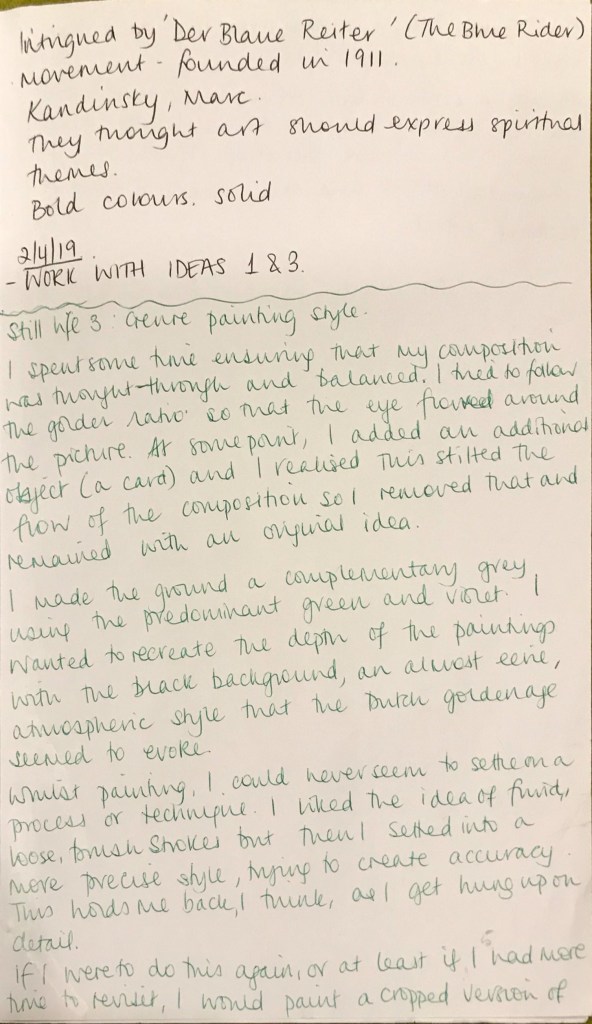 Intrigued by 'Der Blaue Reiter' (The Blue Rider)
movement - founded in 1911.
Kandinsky, Marc.
They thought art should express spiritual
themes.
Bold colours. solid
2/4/19
- WORK WITH IDEAS 1 & 3.
Still life 3: Genre painting style.
I spent some time ensuring that my composition
was thought-through and balanced. I tried to follow
the golden ratio so that the eye flowed around
the picture. At some point, I added an additional
object (a card) and I realised this stilted the
flow of the composition so I removed that and
remained with an original idea.
I made the ground a complementary grey
using the predominant green and violet. I
wanted to recreate the depth of the paintings
with the black background, an almost eerie,
atmospheric style that the Dutch golden age
seemed to evoke.
Whilst painting, I could never seem to settle on a
process or technique. I liked the idea of fluid,
loose, brush strokes but then I settled into a
more precise style, trying to create accuracy.
This holds me back, I think, as I get hung up on
detail.
If I were to do this again, or at least if I had more
time to revisit, I would paint a cropped version of